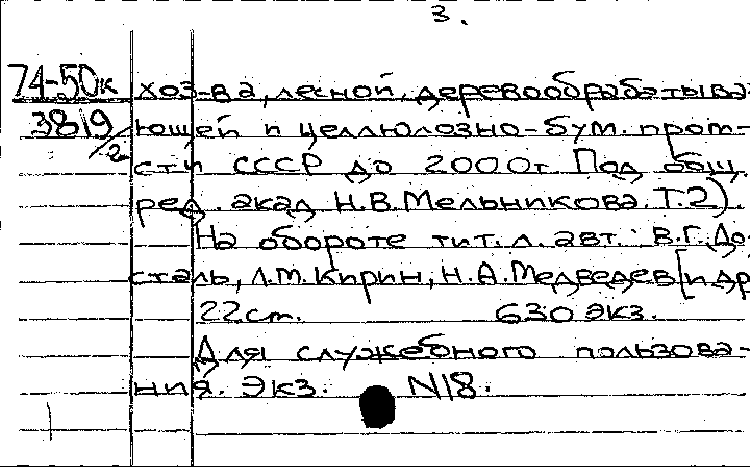 3.
74-50к хоз-ва, лесной, деревообрабатыва-
3819/2 ющей и целлюлозно-бум. пром-
сти СССР до 2000г. Под общ.
ред. акад. Н.В.Мельникова. Т.2).
На обороте тит.л. авт.: В.Г.До-
сталь, Л.М.Кирин, Н.А.Медведев [и др
22см. 630 экз.
Для служебного пользова-
ния. Экз. N18.